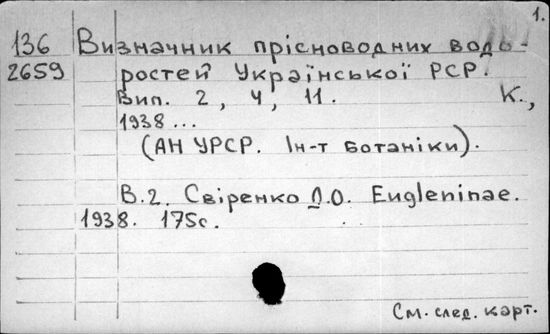 1.
136 Визначник прісноводних водо-
2659 ростей Української РСР.
Вип. 2, 4, 11. К.,
1938...
(АН УРСР. Ін-т ботаніки).
В.2. Свіренко Д.О. Eugleninae.
1938. 175с.
См. след. карт.